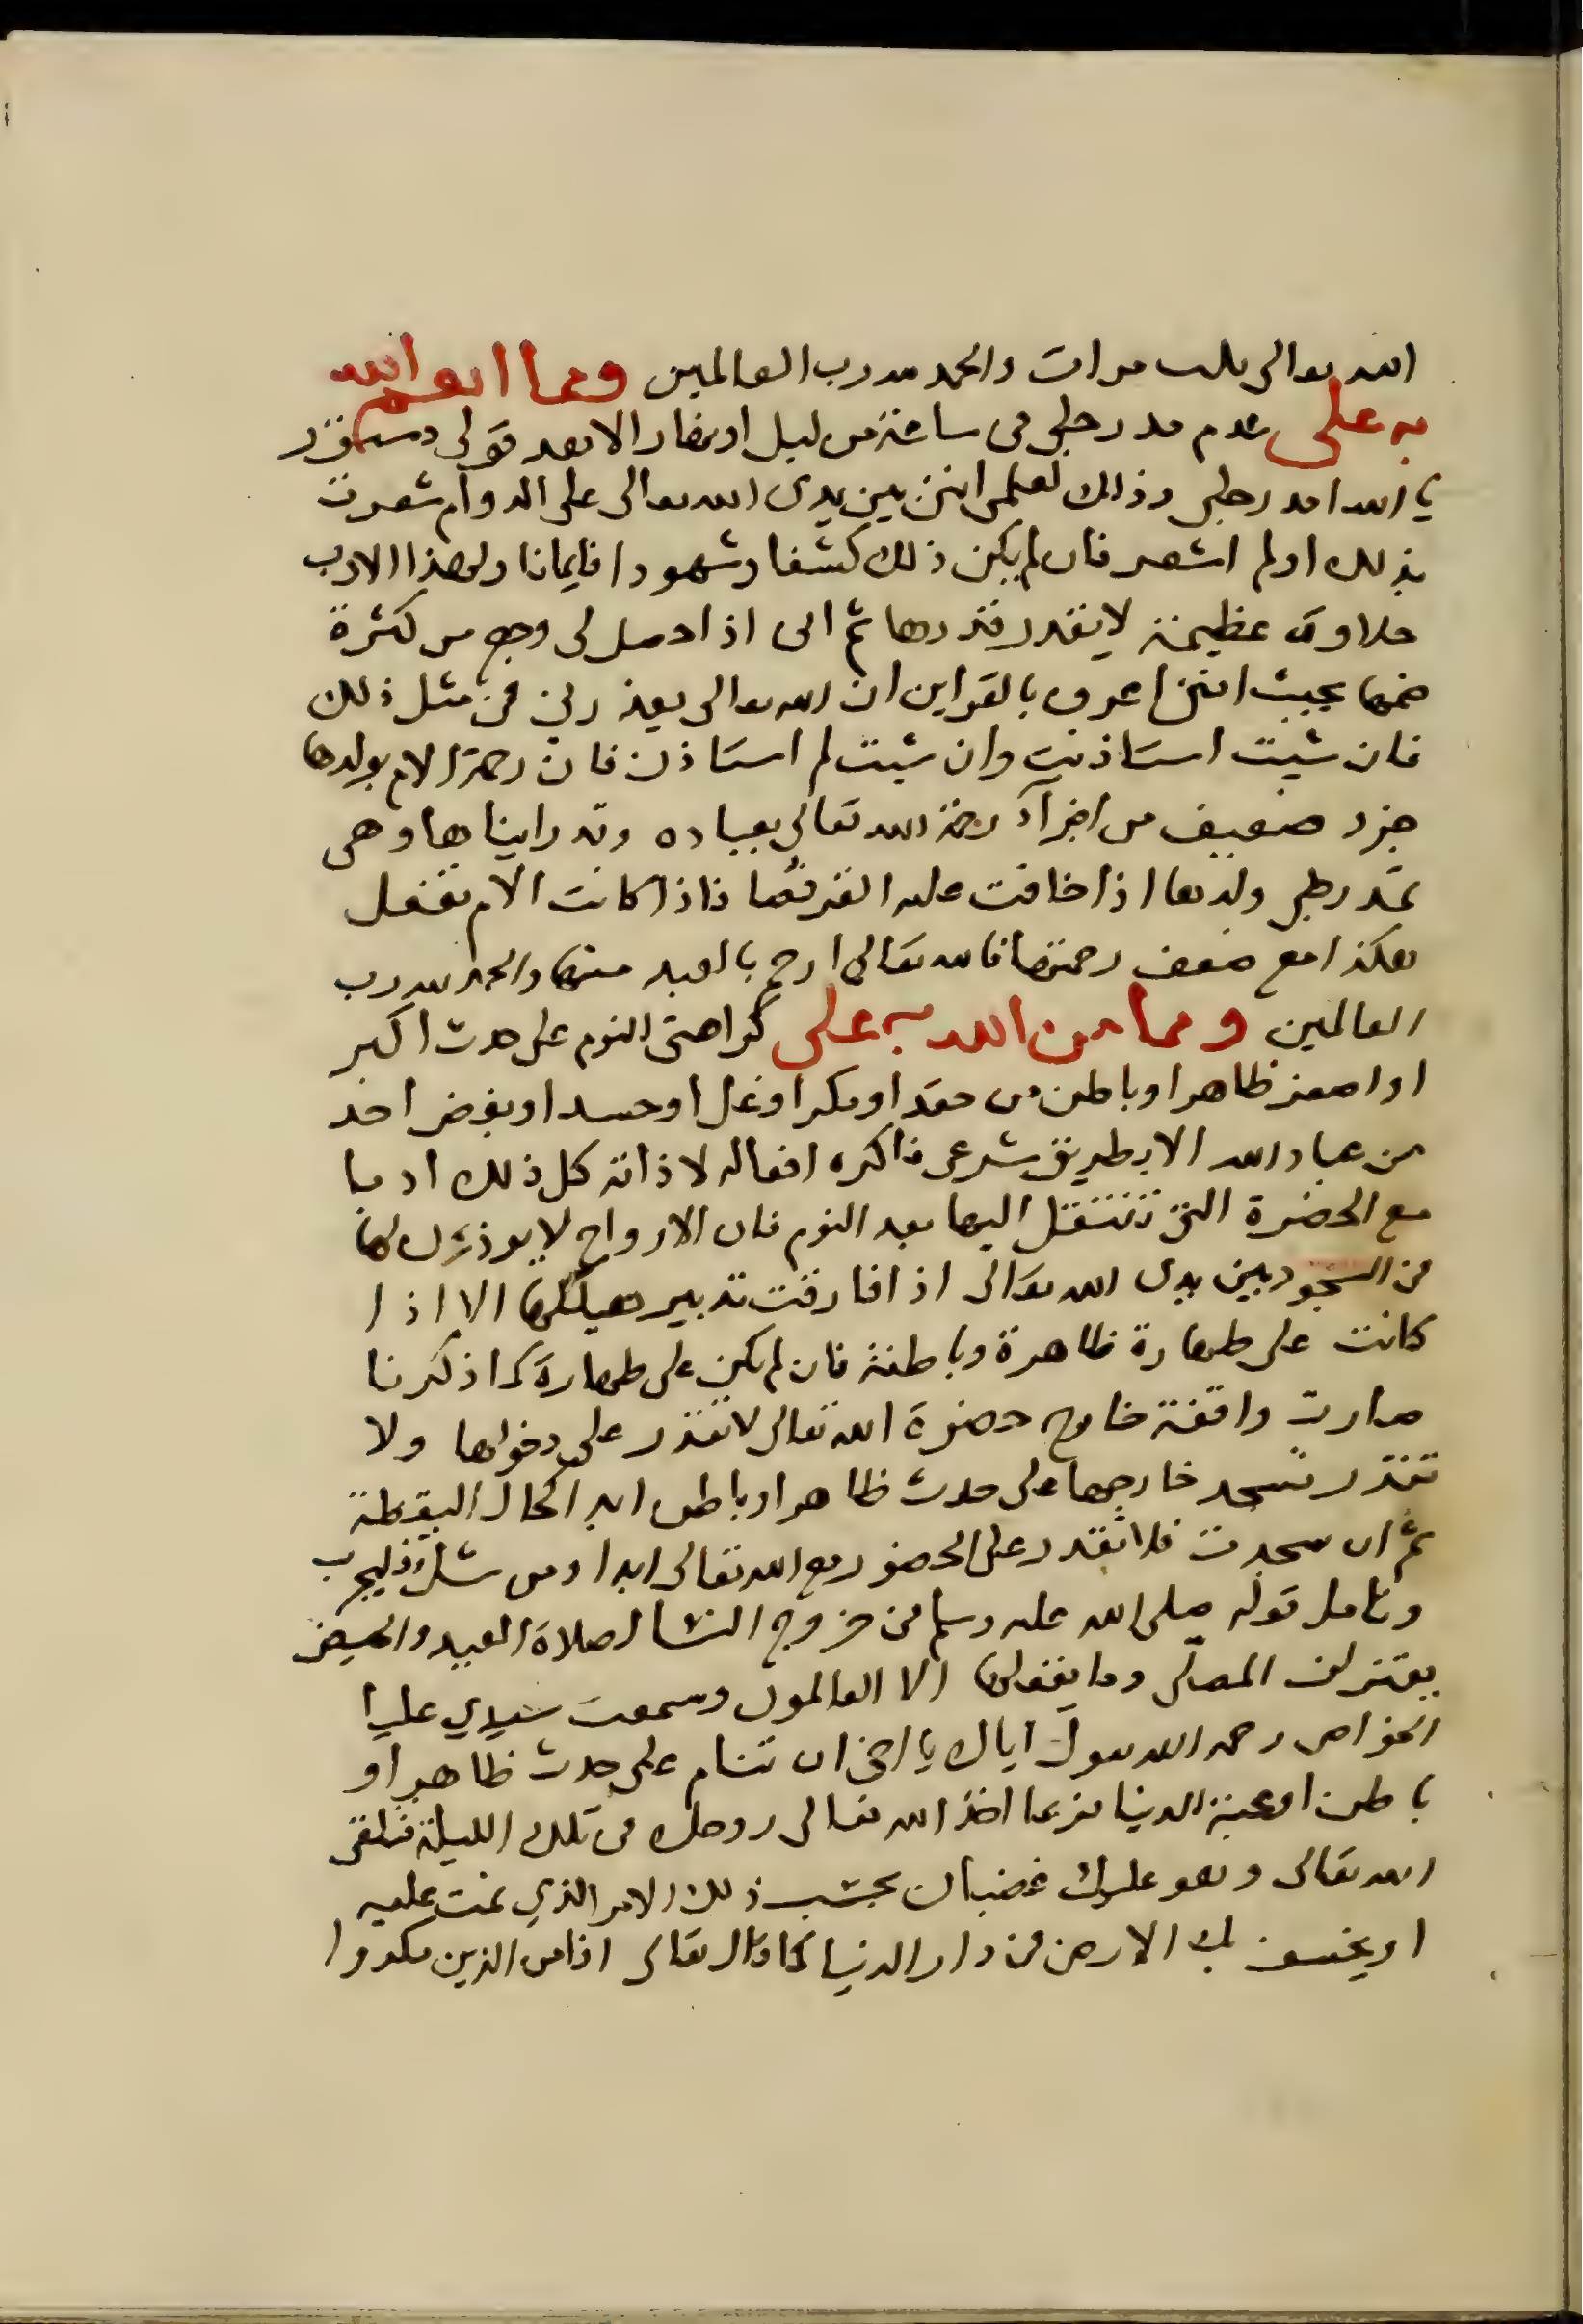 الله تعالى ثلاث مرات والحمد لله رب العالمين ومما انعم الله
به على عدم مد رجلى فى ساعة من ليل او نهار الا بعد قولى دستور
يا الله امد رجلى وذلك لعلمى اننى بين يدى الله تعالى على الدوام شعرت
بذلك او لم اشعر فان لم يكن ذلك كشفا وشهودا فايمانا ولهذا الادب
حلاوة عظيمة لا يقدر قدرها ثم انى اذا حصل لى وجع من كثرة
ضمها بحيث اننى اعرف بالقراين ان الله تعالى يعذرنى فى مثل ذلك
فان شيت استاذنت وان شيت لم استاذن فان رحمة الام بولدها
جزء ضعيف من اجزآء رحمة الله تعالى بعباده وقد رايناها وهى
تمد رجل ولدها اذا خافت عليه القرفصا فاذا كانت الام تفعل
هكذا مع ضعف رحمتها فالله تعالى ارحم بالعبد منها والحمد لله رب
العالمين ومما من الله به على كراهتى النوم على حدث اكبر
او اصغر ظاهر او باطن من حقد او مكر او غل او حسد او بغض احد
من عباد الله الا بطريق شرعى فاكره افعاله لا ذاته كل ذلك ادبا
مع الحضرة التى تنتقل اليها بعد النوم فان الارواح لا يوذن لها
فى السجود بين يدى الله تعالى اذا فارقت تدبير هيكلها الا اذا
كانت على طهارة ظاهرة وباطنة فان لم تكن على طهارة كما ذكرنا
صارت واقفة خارج حضرة الله تعالى لا تقدر على دخولها ولا
تقدر تسجد خارجها على حدث ظاهر او باطن ابدا كحال اليقظة
ثم ان سجدت فلا تقدر على الحضور مع الله تعالى ابدا ومن شك فليجرب
وتامل قوله صلى الله عليه وسلم فى خروج النسا لصلاة العيد والحيض
يعتزلن المصلى وما يعقلها الا العالمون وسمعت سيدي عليا
الخواص رحمه الله يقول اياك يا اخى ان تنام على حدث ظاهر او
باطن او محبة الدنيا فربما اخذ الله تعالى روحك فى تلك الليلة فتلقى
الله تعالى وهو عليك غضبان بحسب ذلك الامر الذي نمت عليه
او يخسف بك الارض فى دار الدنيا كما قال تعالى افامن الذين مكروا